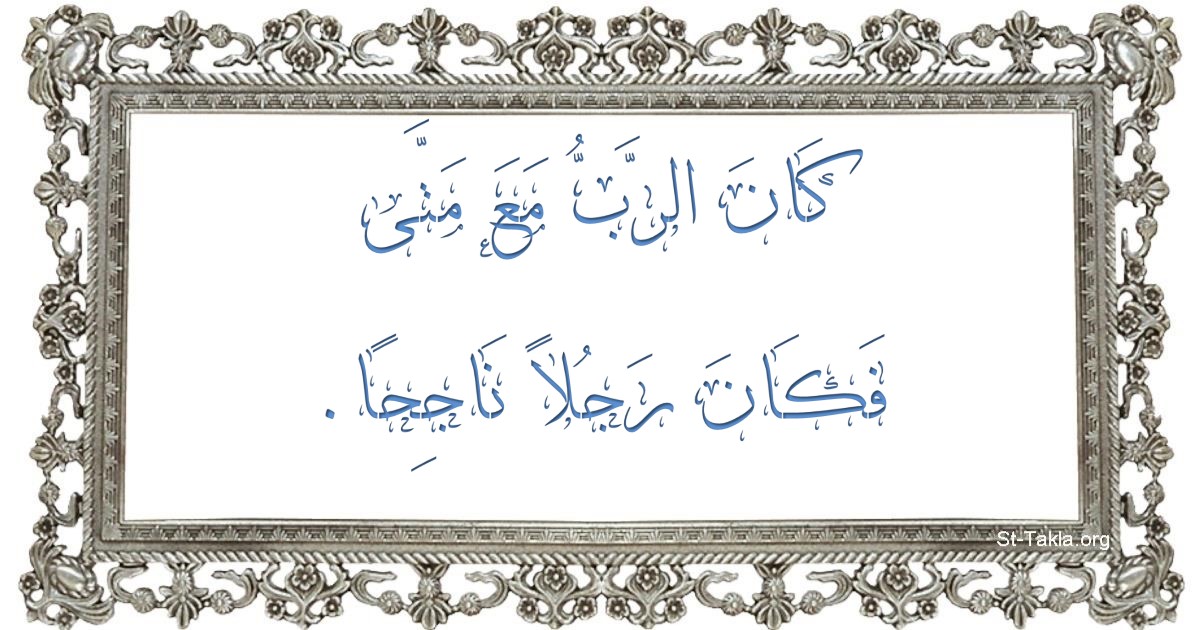 كَانَ الرَّبُّ مَعَ مَتَّى
فَكَانَ رَجُلاً نَاجِحًا .
St-Takla.org